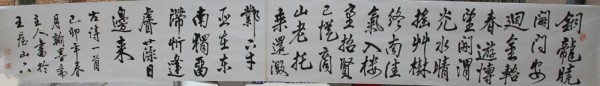 銅龍曉
闢問安
迴金輅
春遊博
望開渭
北晴光
搖草樹
終南佳
氣入樓
臺招賢
已得商
山老托
乘還徵
鄴下才
臣在東
南獨留
滯忻逢
睿藻日
邊來
古詩一首
己卯年春
月翰墨齋
主人書於
王屋山下